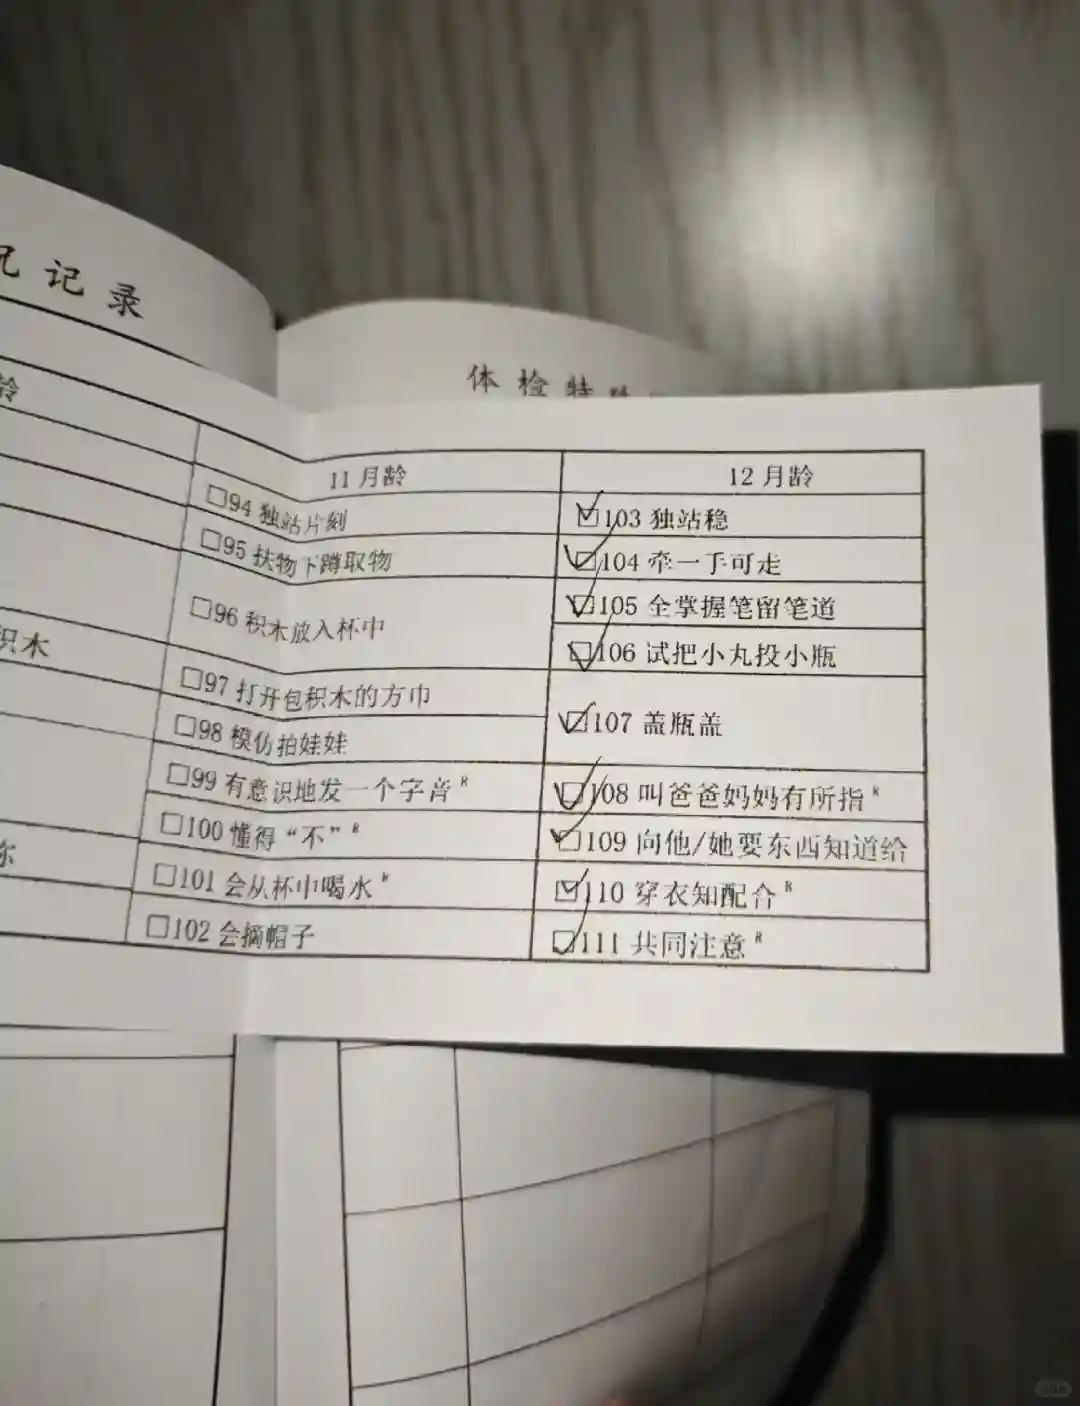 记录
体检特
龄
11月龄
12月龄
□94 独站片刻
☑103 独站稳
□95 扶物下蹲取物
☑104 牵一手可走
□96 积木放入杯中
☑105 全掌握笔留笔道
☑106 试把小丸投小瓶
积木
□97 打开包积木的方巾
☑107 盖瓶盖
□98 模仿拍娃娃
□99 有意识地发一个字音ᴿ
☑108 叫爸爸妈妈有所指ᴿ
□100 懂得“不”ᴿ
☑109 向他/她要东西知道给
□101 会从杯中喝水ᴿ
☑110 穿衣知配合ᴿ
□102 会摘帽子
☑111 共同注意ᴿ